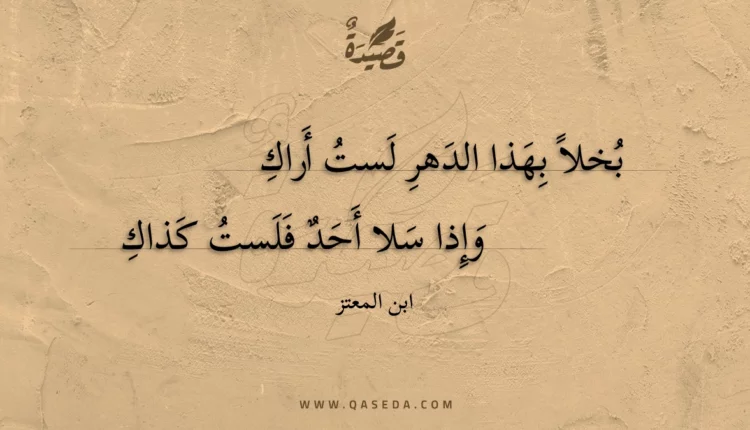 قَصِيدَةٌ
بُخلاً بِهَذا الدَهرِ لَستُ أَراكِ
وَإِذا سَلا أَحَدٌ فَلَستُ كَذاكِ
ابن المعتز
WWW.QASEDA.COM